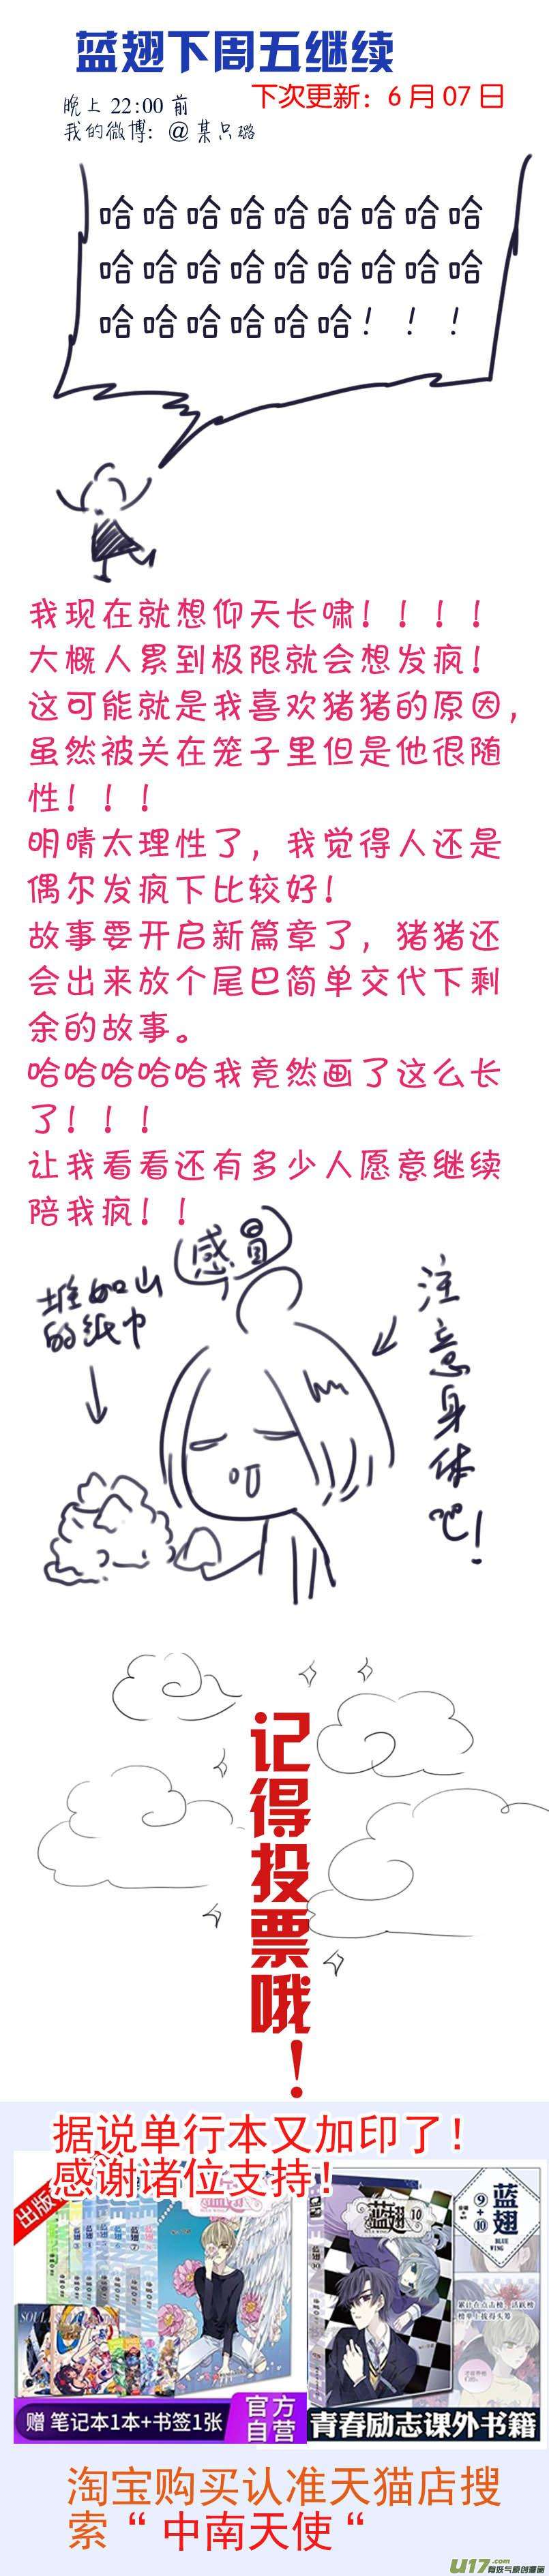 蓝翅下周五继续
下次更新：6月07日
晚上 22:00 前
我的微博：@某只璐
哈哈哈哈哈哈哈哈哈
哈哈哈哈哈哈哈哈哈
哈哈哈哈哈哈！！！
我现在就想仰天长啸！！！！
大概人累到极限就会想发疯！
这可能就是我喜欢猪猪的原因，
虽然被关在笼子里但是他很随
性！！！
明晴太理性了，我觉得人还是
偶尔发疯下比较好！
故事要开启新篇章了，猪猪还
会出来放个尾巴简单交代下剩
余的故事。
哈哈哈哈哈我竟然画了这么长
了！！！
让我看看还有多少人愿意继续
陪我疯！！
感冒
堆如山
的纸巾
注意身体吧！
记得投票哦！
据说单行本又加印了！
感谢诸位支持！
出版
蓝翅
蓝翅 10
⑨+⑩
蓝翅
BLUE WING
赠 笔记本1本+书签1张
官方
自营
青春励志课外书籍
淘宝购买认准天猫店搜
索“中南天使“
U17.com
有妖气原创漫画